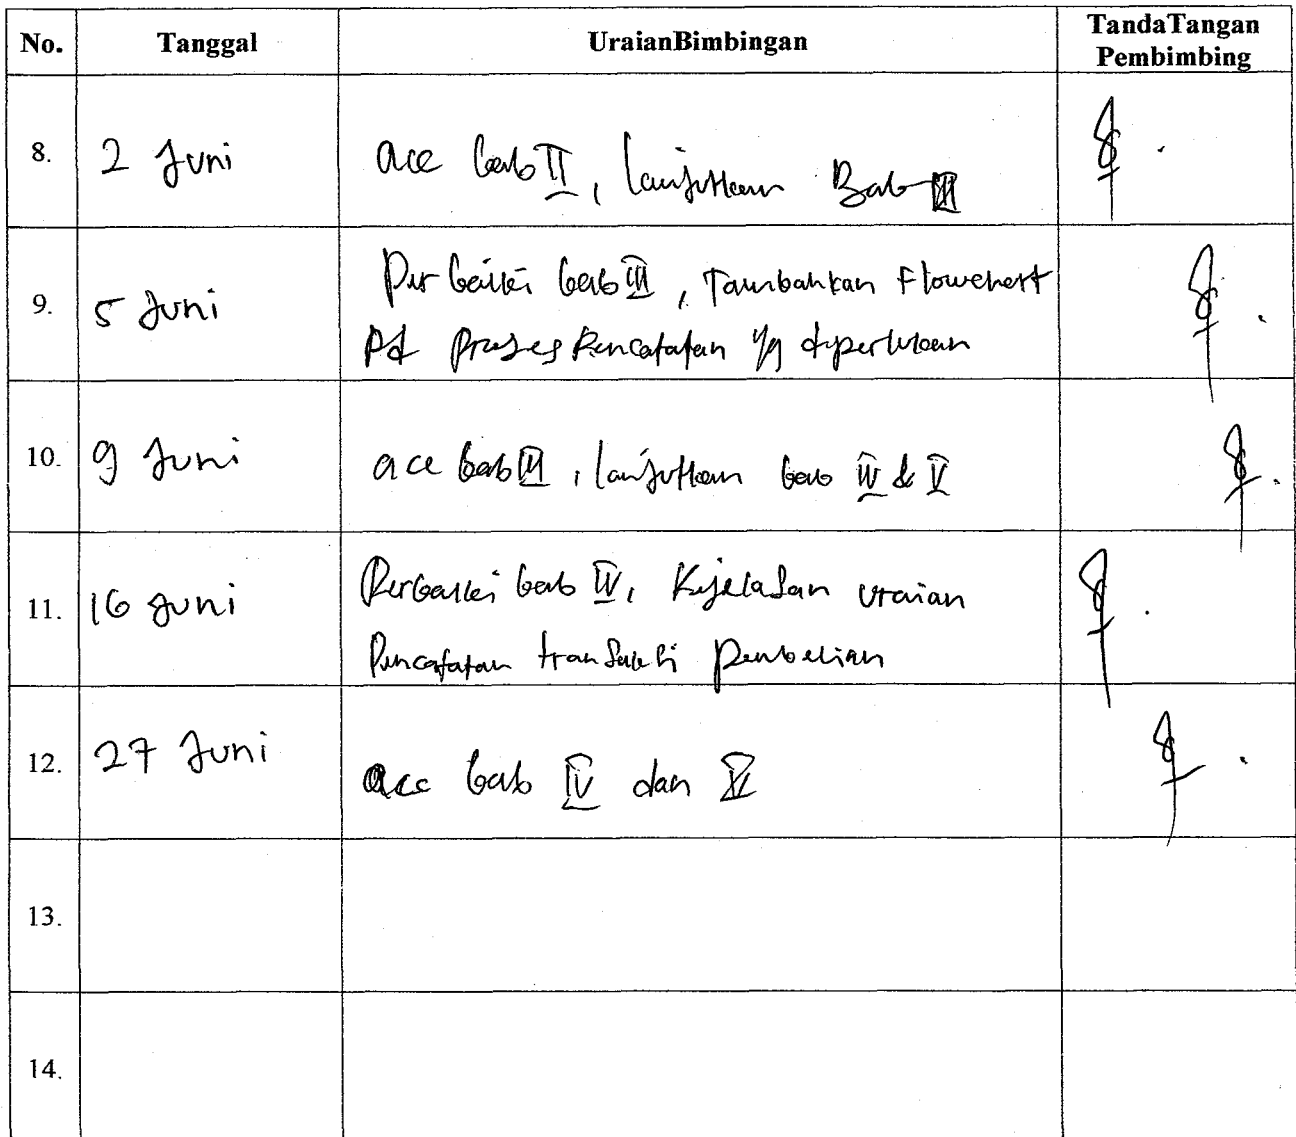 No. Tanggal UraianBimbingan TandaTangan Pembimbing
8. 2 Juni acc bab II, lanjutkan Bab III
9. 5 Juni Perbaiki bab III, Tambahkan Flowchart
pd proses Pencatatan yg diperlukan
10. 9 Juni acc bab III, lanjutkan bab IV & V
11. 16 Juni Perbaiki bab IV, Kejelasan uraian
Pencatatan transaksi pembelian
12. 27 Juni acc bab IV dan V
13.
14.